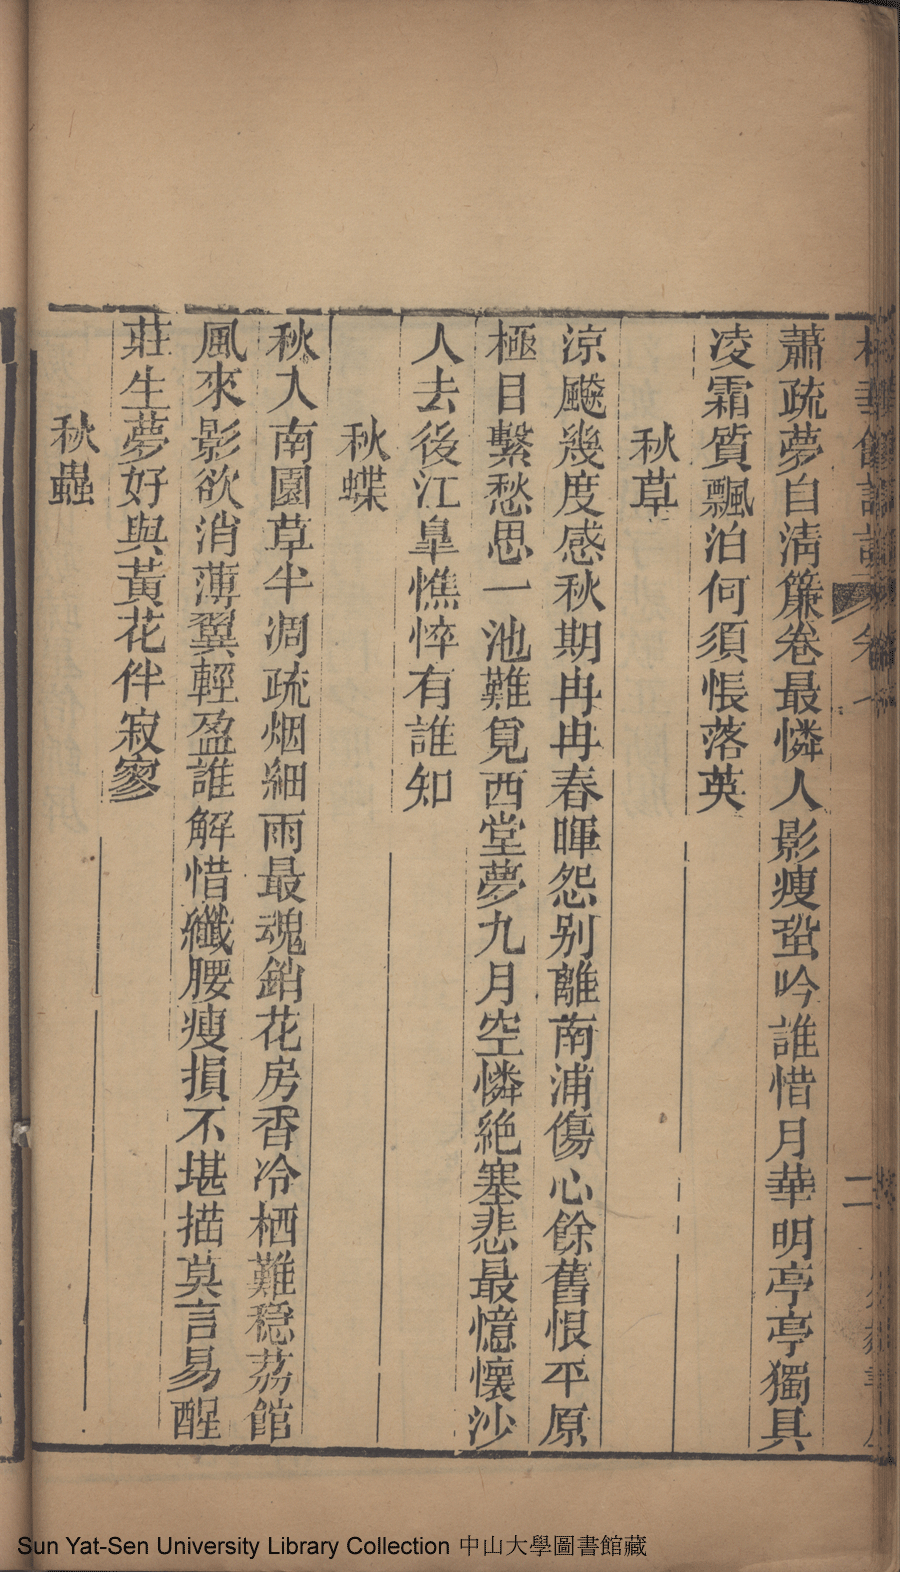 蕭疏夢自清簾卷最憐人影瘦蛩吟誰惜月華明亭亭獨具
凌霜質飄泊何須悵落英
秋草
涼飈幾度感秋期冉冉春暉怨别離南浦傷心餘舊恨平原
極目繫愁思一池難覓西堂夢九月空憐絶塞悲最憶懷沙
人去後江臯憔悴有誰知
秋蝶
秋入南園草半凋疏烟細雨最魂銷花房香冷栖難穏荔館
風來影欲消薄翼輕盈誰解惜纖腰瘦損不堪描莫言易醒
莊生夢好與黃花伴寂寥
秋蟲
二
Sun Yat-Sen University Library Collection 中山大學圖書館藏